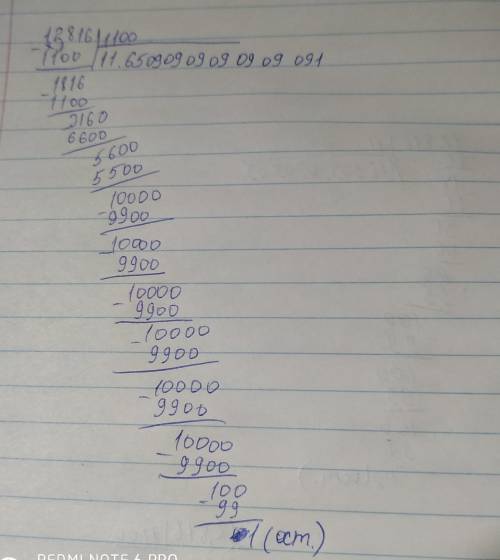 12816 | 1100
- 1100 | 11.6509090909090 9 091
- 1816
1100
2160
6600
5600
5500
10000
- 9900
- 10000
9900
- 10000
9900
- 10000
9900
- 10000
9900
- 10000
9900
- 100
99
1 (ост.)
REDMI NOTE 6 PRO